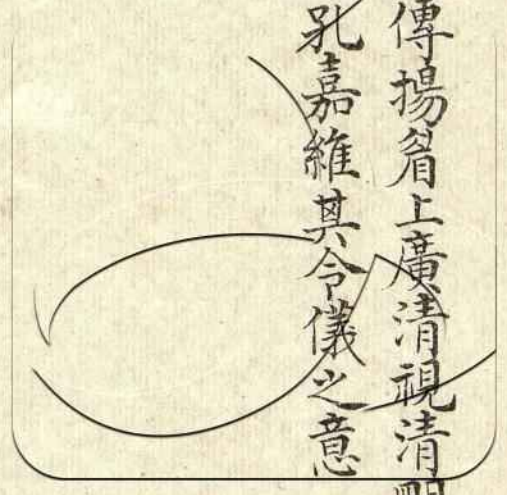 傳揚眉上廣清視清明
孔嘉維其令儀之意